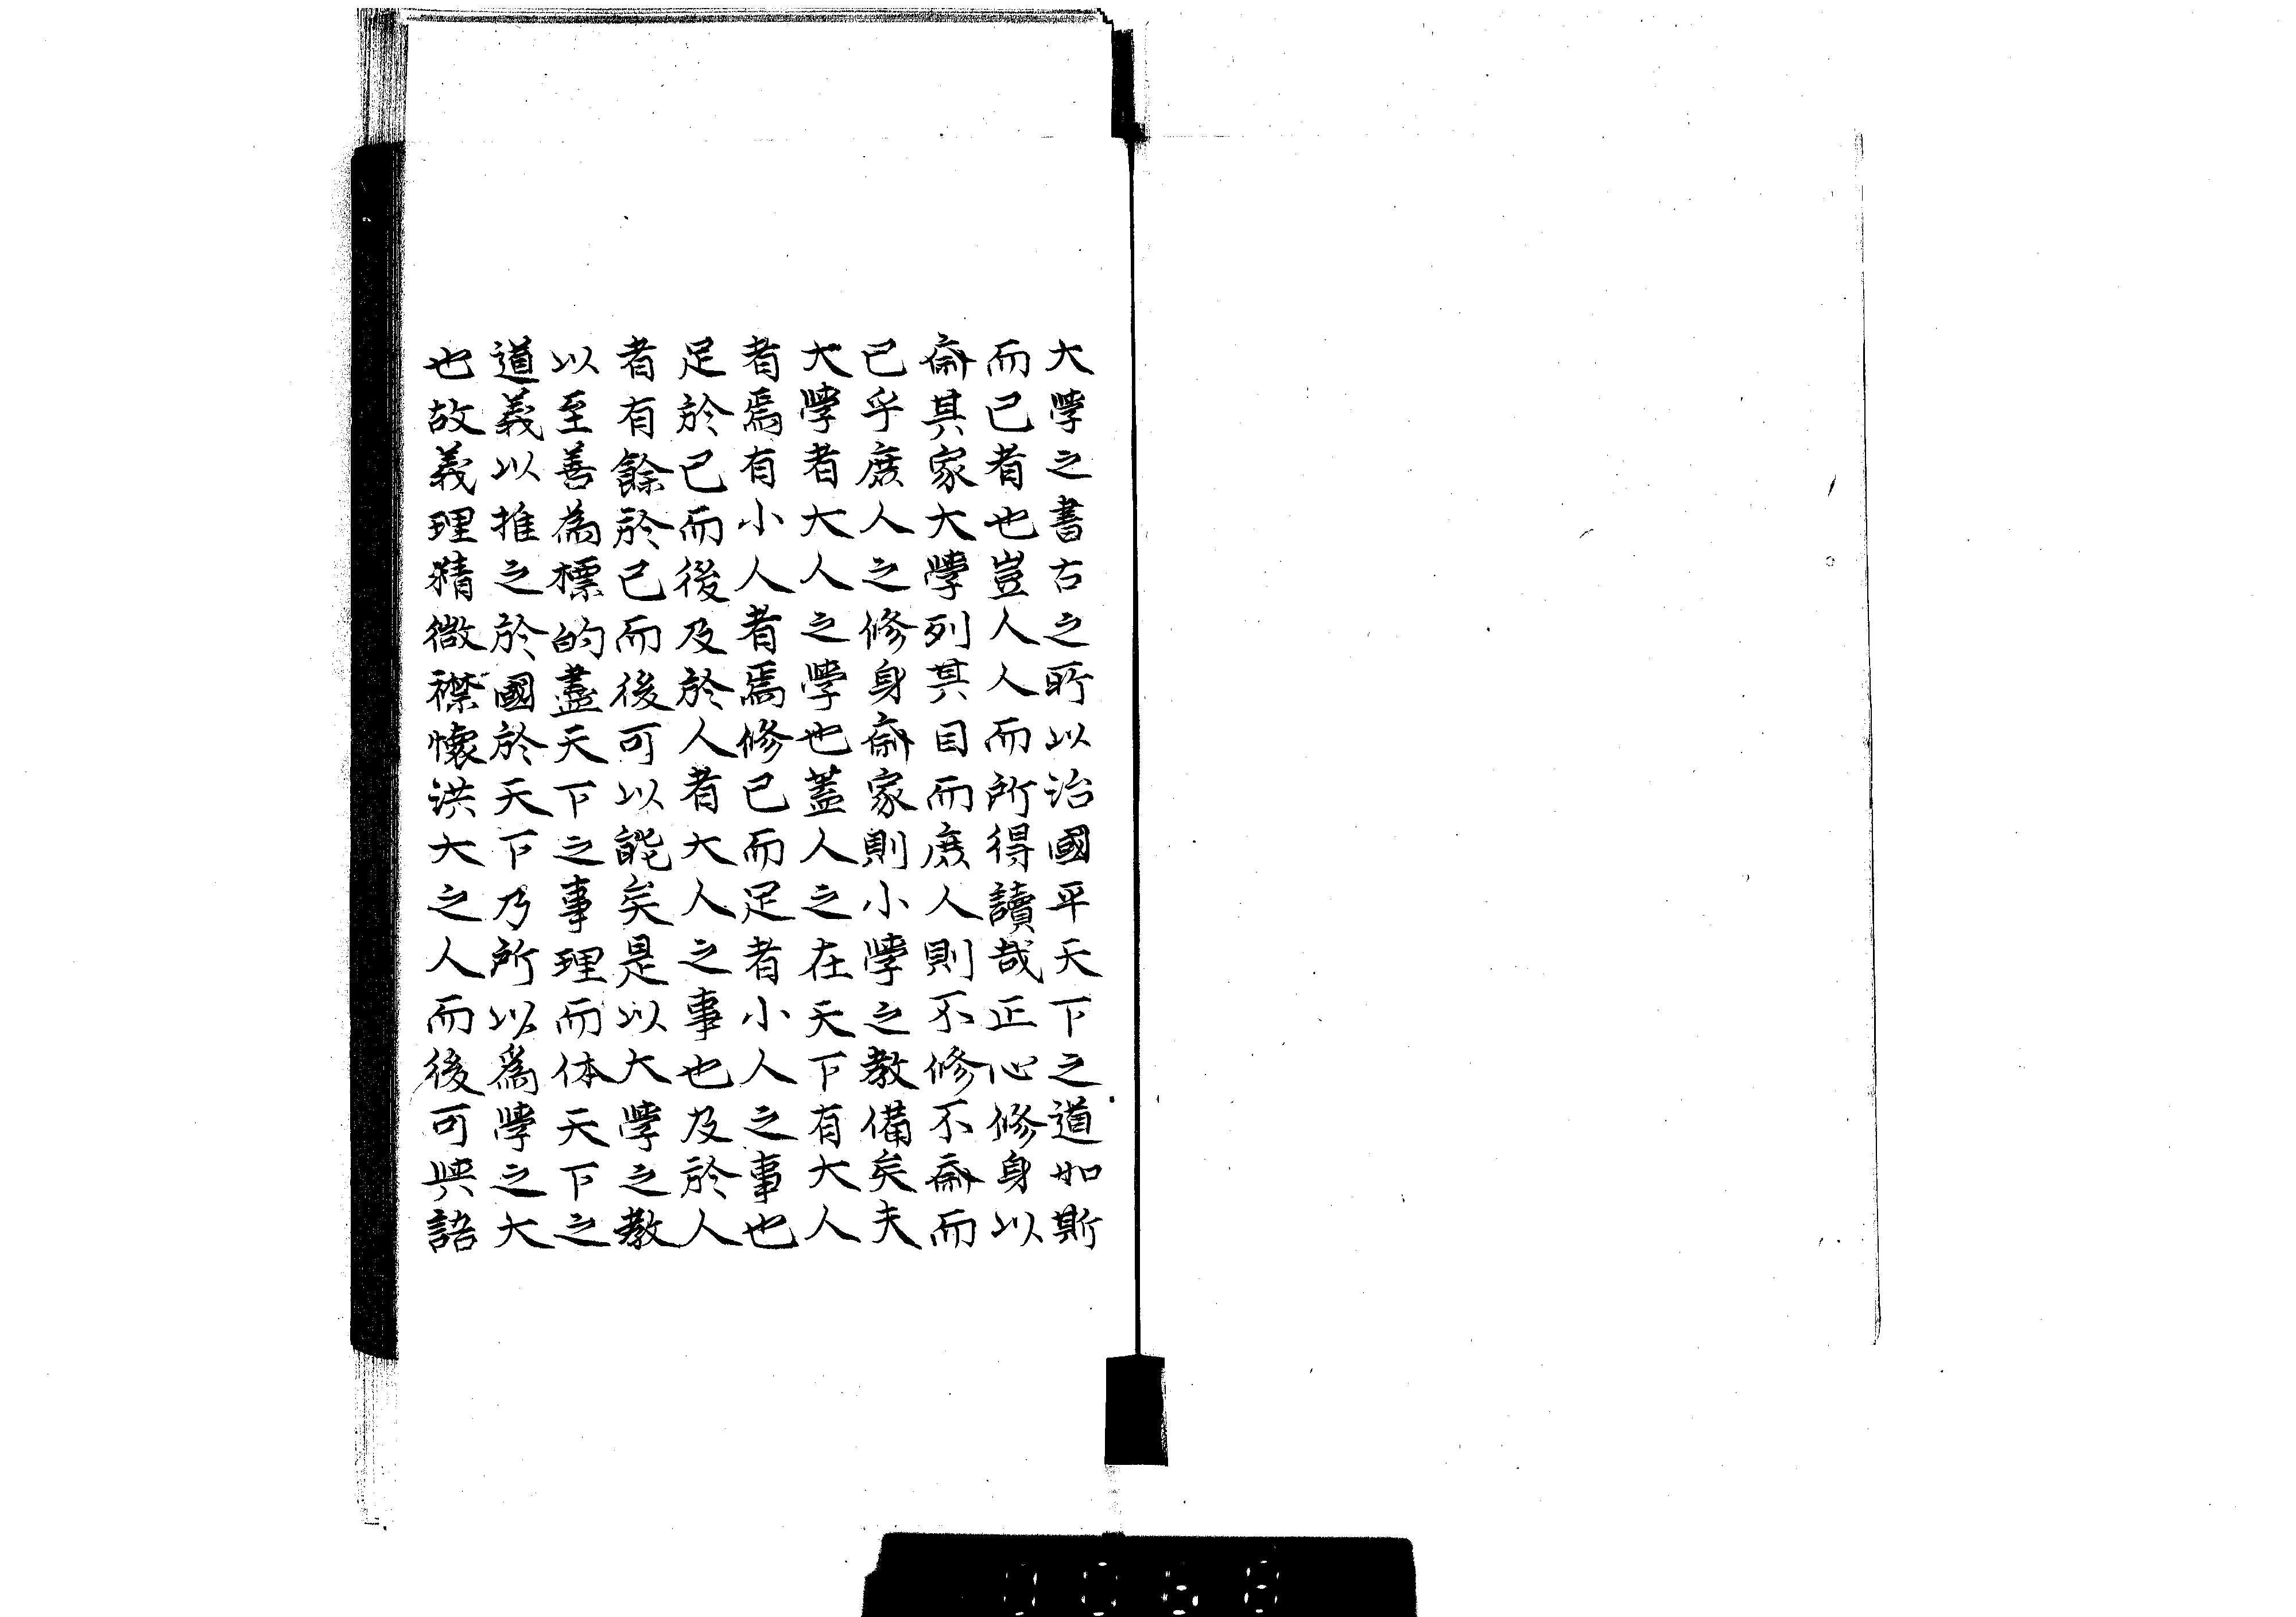 大學之書古之所以治國平天下之道如斯
而已者也豈人人而所得讀哉正心修身以
齊其家大學列其目而庶人則不修不齊而
已乎庶人之修身齊家則小學之教備矣夫
大學者大人之學也蓋人之在天下有大人
者焉有小人者焉修己而足者小人之事也
足於己而後及於人者大人之事也及於人
者有餘於己而後可以能矣是以大學之教
以至善為標的盡天下之事理而体天下之
道義以推之於國於天下乃所以爲學之大
也故義理精微襟懷洪大之人而後可與語